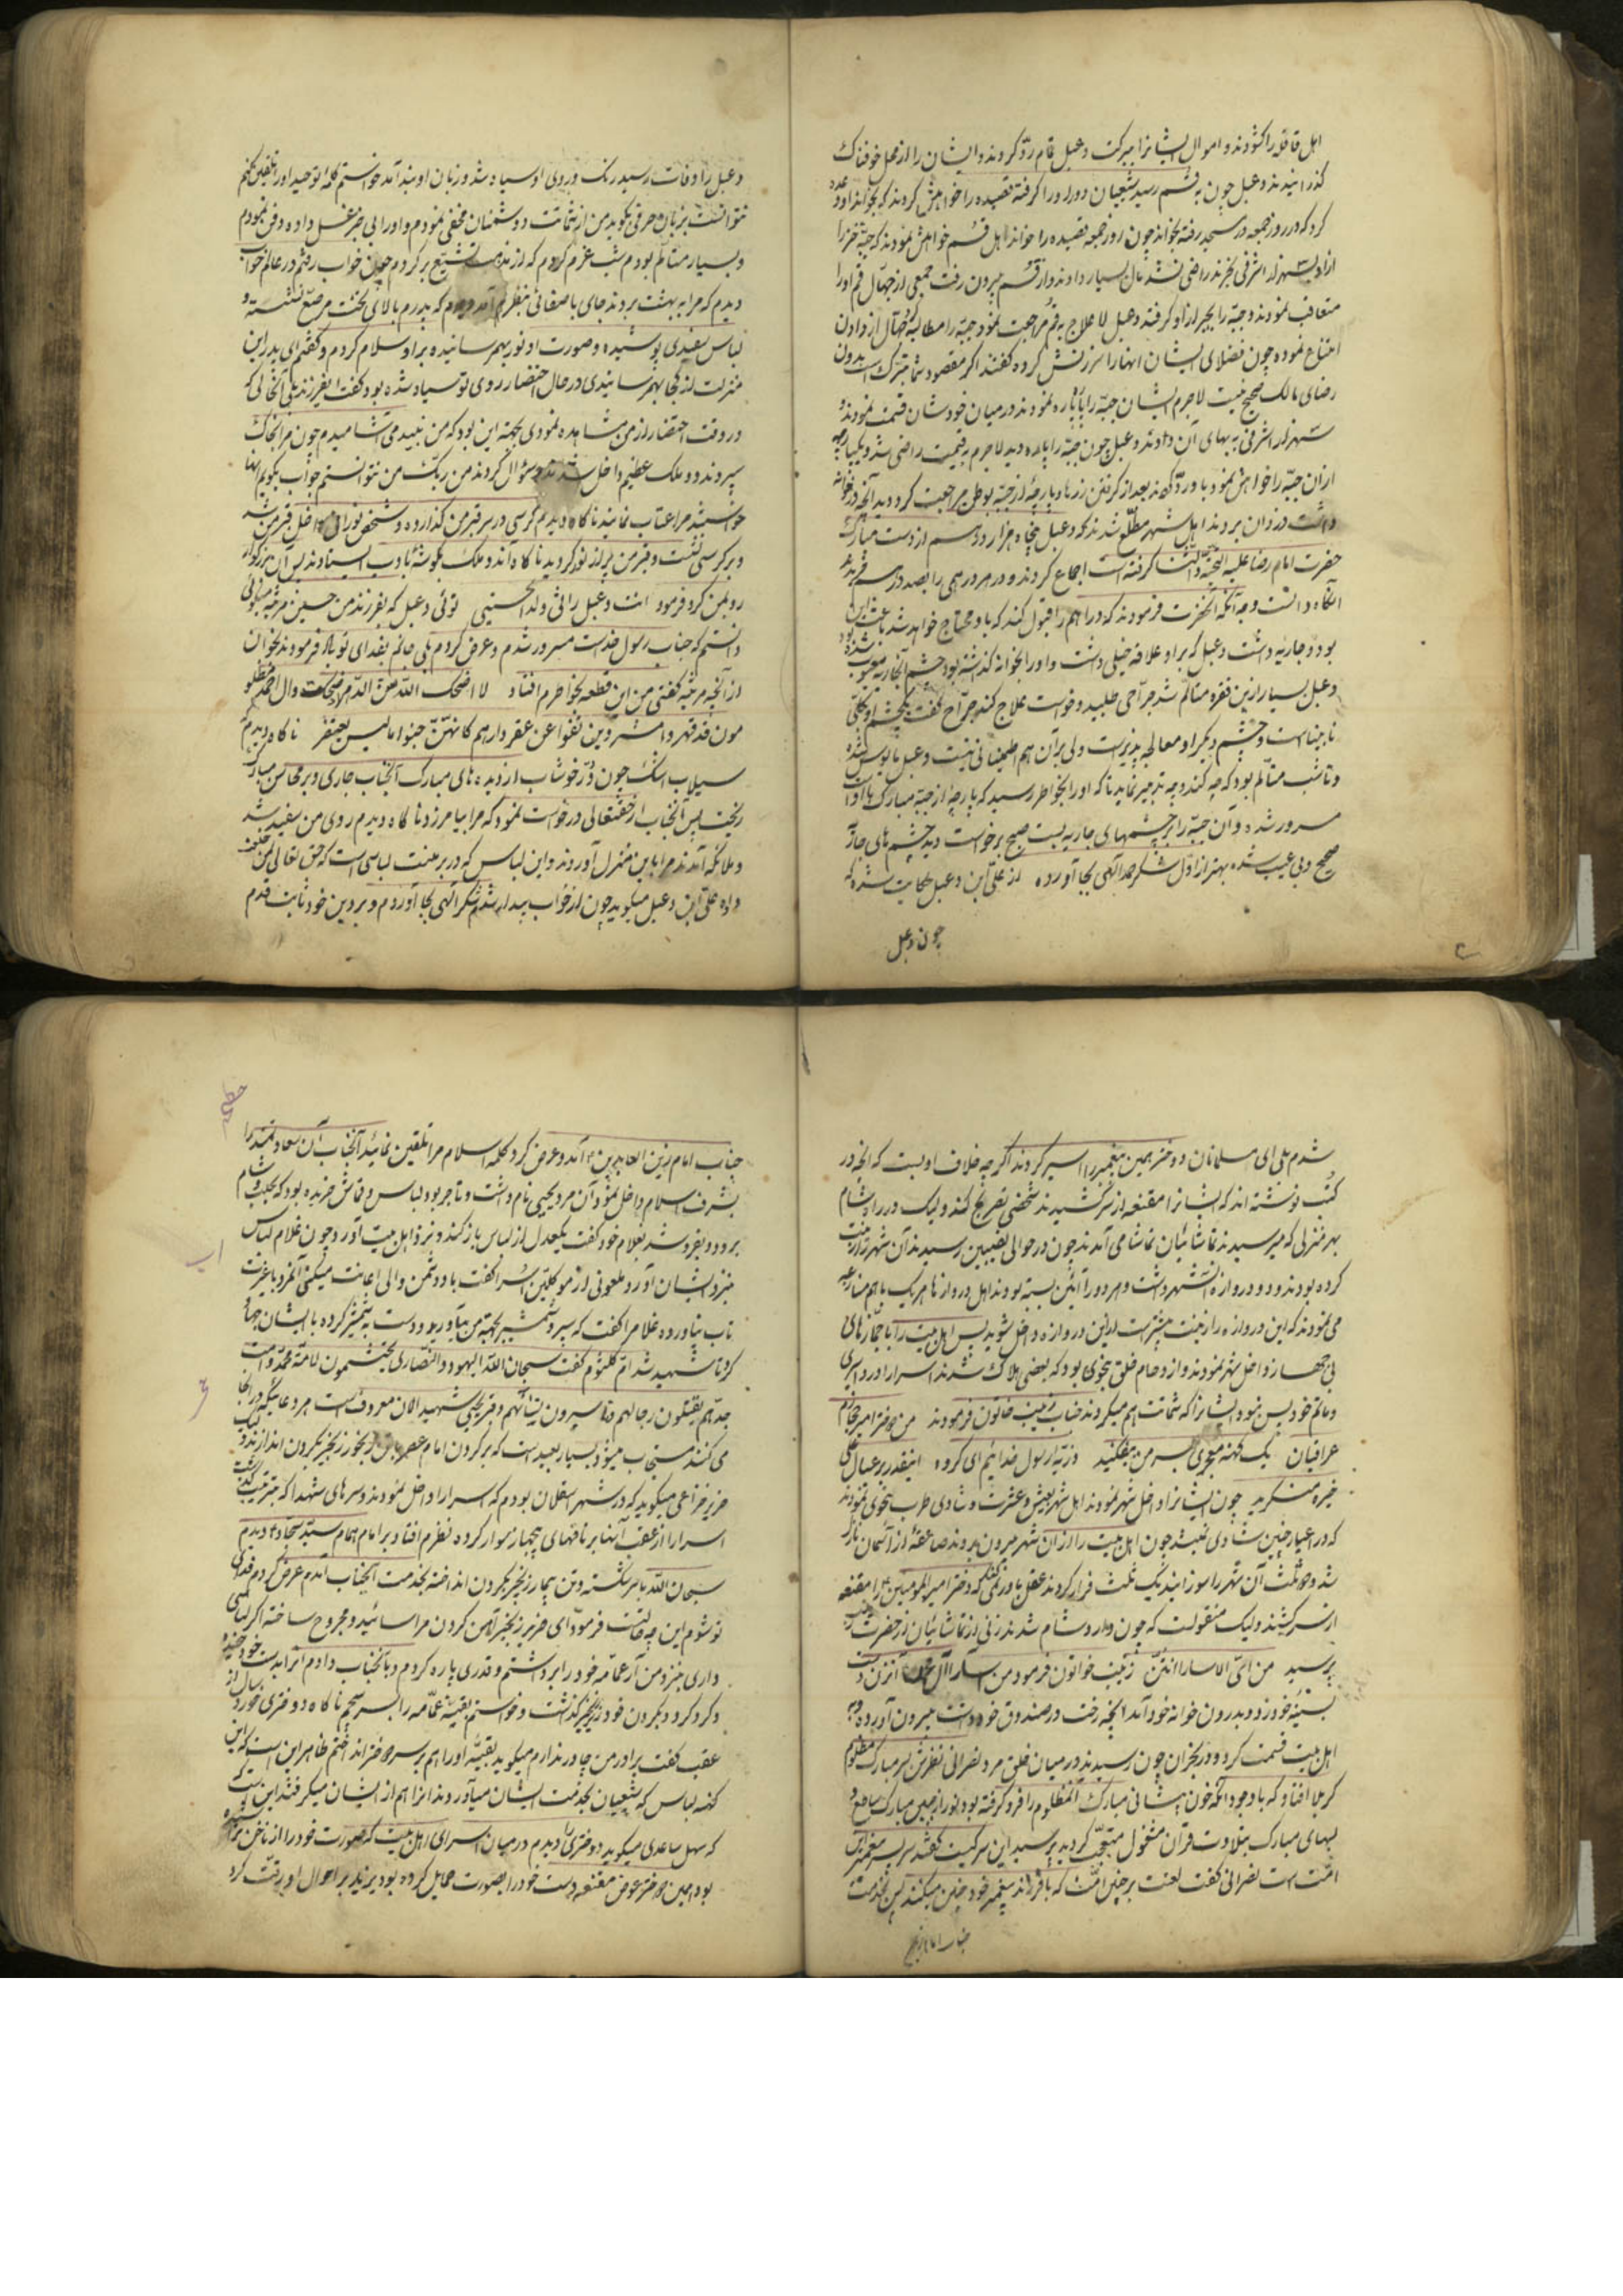 اهل قافله را کشودند و اموال ایشانرا ببرکت دعبل تمام رد کردند و ایشان را از محل خوفناک
گذرانیدند دعبل چون به قم رسید شیعیان دور او را گرفته قصیده را خواهش کردند که بخواند او وعده
کرد که در روز جمعه در مسجد رفته بخواند چون روز جمعه قصیده را خواند اهل قم خواهش نمودند که جبه خز را
از او بهزار اشرفی بخرند راضی نشد مال بسیار دادند و از قم بیرون رفت جمعی از جهال قم او را
متعاقب نمودند و جبه را بجبر از او گرفتند دعبل لا علاج به قم مراجعت نمود جبه را مطالبه کرد جهال از دادن
امتناع نموده چون فضلای ایشان انها را سرزنش کرده گفتند اگر مقصود شما تبرک است بدون
رضای مالک صحیح نیست لاجرم ایشان جبه را پاره پاره نمودند در میان خودشان قسمت نمودند و
هزار اشرفی به بهای آن دادند دعبل چون جبه را پاره دید لاجرم به قیمت راضی شد و یکپارچه
از ان جبه را خواهش نمود باو رد کردند بعد از گرفتن زر با پارچهٔ از جبه بوطن مراجعت کرد و دید آنچه در خانه
داشت دزدان بردند اهل شهر مطلع شدند که دعبل پنجاه هزار درهم از دست مبارک
حضرت امام رضا علیه التحیة و الثنا گرفته است اجماع کردند و در هر درهمی را بصد درهم خریدند
آنگاه دانست وجه آنکه آنحضرت فرمودند که دراهم را قبول کند که باو محتاج خواهد شد باعث این
بود و جاریه داشت دعبل که براو علاقه خیلی داشت و او را بخانه گذاشته بود چشم آنجاریه معیوب شده بود
دعبل بسیار ازین فقره متألم شد جراحی طلبید و خواست علاج کند جراح گفت یکچشم او بکلی
نابیناست و چشم دیگر او معالجه پذیرست ولی برآن هم اطمینانی نیست دعبل مأیوس شده
و تا شب متألم بود که چه کند و چه تدبیر نماید ناگاه او را بخاطر رسید که پارچهٔ از جبه مبارک با اوست
مسرور شده و آن جبه را بر چشمهای جاریه بست صبح برخواست دید چشم های جاریه
صحیح و بی عیب شده بهتر از اول شکر حمد الهی بجا آورده از علی ابن دعبل حکایت شده که
چون دعبل
دعبل را وفات رسید رنک و روی او سیاه شد و زبان او بند آمد خواستم کلمه توحید او را تلقین کنم
نتوانست بزبان حرفی بگوید من از شماتت دوشمنان مخفی نمودم و او را بی خبر غسل داده دفن نمودم
و بسیار متألم بودم شب عزم کردم که از مذهب تشیع برگردم چون خواب رفتم در عالم خواب
دیدم که مرا به بهشت بردند جای با صفائی بنظرم آمد دیدم که پدرم بالای تخت مرصع نشسته و
لباس سفیدی پوشیده و صورت او نور بهم رسانیده براو سلام کردم و گفتم ای پدر این
منزلت از کجا بهم رسانیدی در حال احتضار روی تو سیاه شده بود گفت ایفرزند بلی آنحالی که
در وقت احتضار از من مشاهده نمودی بجهة این بود که من نبید می آشامیدم چون مرا بخاک
سپردند دو ملک عظیم داخل شدند و سؤال کردند من ربک من نتوانستم جواب بگویم انها
خواستند مرا عتاب نمایند ناگاه دیدم کرسی در سر قبر من گذارده و شخص نورانی داخل قبر من شد
و بر کرسی نشست و قبر من پر از نور گردید ناگاه آند و ملک بگوشهٔ با ادب ایستادند پس آن بزرگوار
رو بمن کرد فرمود انت دعبل راثی ولد الحسینی توئی دعبل که بفرزند من حسین مرثیه میگوئی
دانستم که جناب رسول خداست مسرور شدم و عرض کردم بلی جانم بفدای تو باد فرمودند بخوان
از آنچه مرثیه گفتی من این قطعه بخاطرم افتاد لا اضحک الله سن الدهر ان ضحکت و ال احمد مظلو
مون قد قهروا مشردین نفوا عن عقر دارهم کانهم جنوا ما لیس یغتفر ناگاه دیدم
سیلاب اشک چون در خوشاب از دیده های مبارک آنجناب جاری و بر محاسن مبارک
ریخت پس آنجناب از حقتعالی درخواست نمود که مرا بیامرزد ناگاه دیدم روی من سفید شد
و ملائکه آمدند مرا باین منزل آوردند و این لباس که در بر منست لباسی است که حق تعالی بمن خلعت
داده علی ابن دعبل میگوید چون از خواب بیدار شدم شکر الهی بجا آوردم و بر دین خود ثابت قدم
شدم بلی ای مسلمانان دو دختر همین پیغمبر را اسیر کردند اگرچه خلاف اولیست که آنچه در
کتب نوشته اند که ایشانرا مقنعه از سر کشیدند شخصی تصریح کند ولیک در راه شام
بهر منزلی که میرسیدند تماشائیان تماشا می آمدند چون در حوالی نصیبین رسیدند آن شهر را زینت
کرده بودند و دو دروازه آنشهر داشت و هر دو را آئین بسته بودند اهل دروازها هر یک با هم منازعه
می نمودند که این دروازه را زینت بیشتر است از این دروازه داخل شوید پس اهل بیت را با جمازهای
بی جهاز داخل شهر نمودند و ازدحام خلق بنحوی بود که بعضی هلاک شدند اسرا را در اسیری
و ماتم خود بس نبود ایشانرا که شماتت هم میکردند جناب زینب خاتون فرمودند من دختر امیر حجازم
عراقیان یک کهنه معجری بسر من بیفکنید ذریه رسول خدائیم ای گروه اینقدر بر عیال علی
خیره منگرید چون ایشانرا داخل شهر نمودند اهل شهر بعیش و عشرت و شادی طرب بنحوی نمودند
که در اعیاد چنین شادی نمیشد چون اهل بیت را از ان شهر بیرون بردند صاعقهٔ از آسمان نازل
شد و دو ثلث آن شهر را سوزانید یک ثلث فرار کردند عقل باور نمیکند که دختر امیر المومنین را مقنعه
از سر کشیند ولیک منقولست که چون وارد شام شدند زنی از تماشائیان از حضرت زینب
پرسید من ای الاسارا انتن زینب خواتون فرمود من اسارا آل محمد آنزن دست
بسینه خود زد و بدرون خانه خود آمد انچه رخت در صندوق خود داشت بیرون آورده به
اهل بیت قسمت کرد و در بحران چون رسیدند در میان خلق مرد نصرانی نظرش بسر مبارک مظلوم
کربلا افتاد که با وجود انکه خون پیشانی مبارک آنمظلوم را فرو گرفته بود نور از جبین مبارک ساطع و
لبهای مبارک بتلاوت قرآن مشغول متعجب گردید پرسید این سر کیست گفتند سر پسر پیغمبر این
امت است نصرانی گفت لعنت بر چنین امت که با فرزند پیغمبر خود چنین میکنند پس بخدمت
جناب امام زین
جناب امام زین العابدین ع آمد و عرض کرد کلمه اسلام مرا تلقین نمائید آنجناب آن سعادتمند را
بشرف اسلام داخل نمود آن مرد یحیی نام داشت و تاجر بود لباس و قماش خریده بود که بحلب و شام
برود و بفروشد بغلام خود گفت یکعدل از لباس باز کند و نزد اهل بیت آورد چون غلام لباس
بنزد ایشان آورد ملعونی از موکلین اسرا گفت با دوشمن والی اعانت میکنی آنمرد با غیرت
تاب نیاورده غلام را گفت که سپر و شمشیر بجهة من بیاور برد و دست بشمشیر کرده با ایشان جهاد
کرد تا شهید شد ام کلثوم گفت سبحان الله الیهود و النصاری یحتشمون لامة محمد و امت
جدهم یقتلون رجالهم و یاسرون نسائهم و قبر یحیی شهید الان معروف است هر دعا میکند در انجا
می کنند مستجاب میشود بسیار بعید است که بر گردن امام عصر زنجیر بگردن اندازند و لیک
حزیر خزاعی میگوید که در شهر اسقلان بودم که اسرا را داخل نمودند و سرهای شهدا که
اسرا را از عقب آنها بر ناقهای بیجهاز سوار کرده نظرم افتاد بر امام همام سید سجاد ع دیدم
سبحان الله با سر شکسته و تن بیمار زنجیر بگردن انداخته بخدمت آنجناب آمدم عرض کردم فدای
تو شوم این چه حالتست فرمود ای حزیر زنجیر آهن گردن مرا سائیده و مجروح ساخته اگر لباسی
داری بنزد من آر عمامه خود را برداشتم و قدری پاره کردم و بآنجناب دادم آنرا بدست خود
و کرد کرد و بگردن خود زیر زنجیر گذاشت و خواستم بقیه عمامه را بسر پیچم ناگاه دختری خورد سال از
عقب گفت برادر من چادر ندارم میگوید بقیه او را هم بر سر دختر انداختم ظاهر این است که این
کهنه لباس که شیعیان بخدمت ایشان میآوردند انرا هم از ایشان میگرفتند این است
که سهل ساعدی میگوید دختری را دیدم در میان اسرای اهل بیت که صورت خود را از ناخن
بود و همین دختر عوض مقنعه دست خود را بصورت حمایل کرده بود یزید بر احوال او رقت کرد